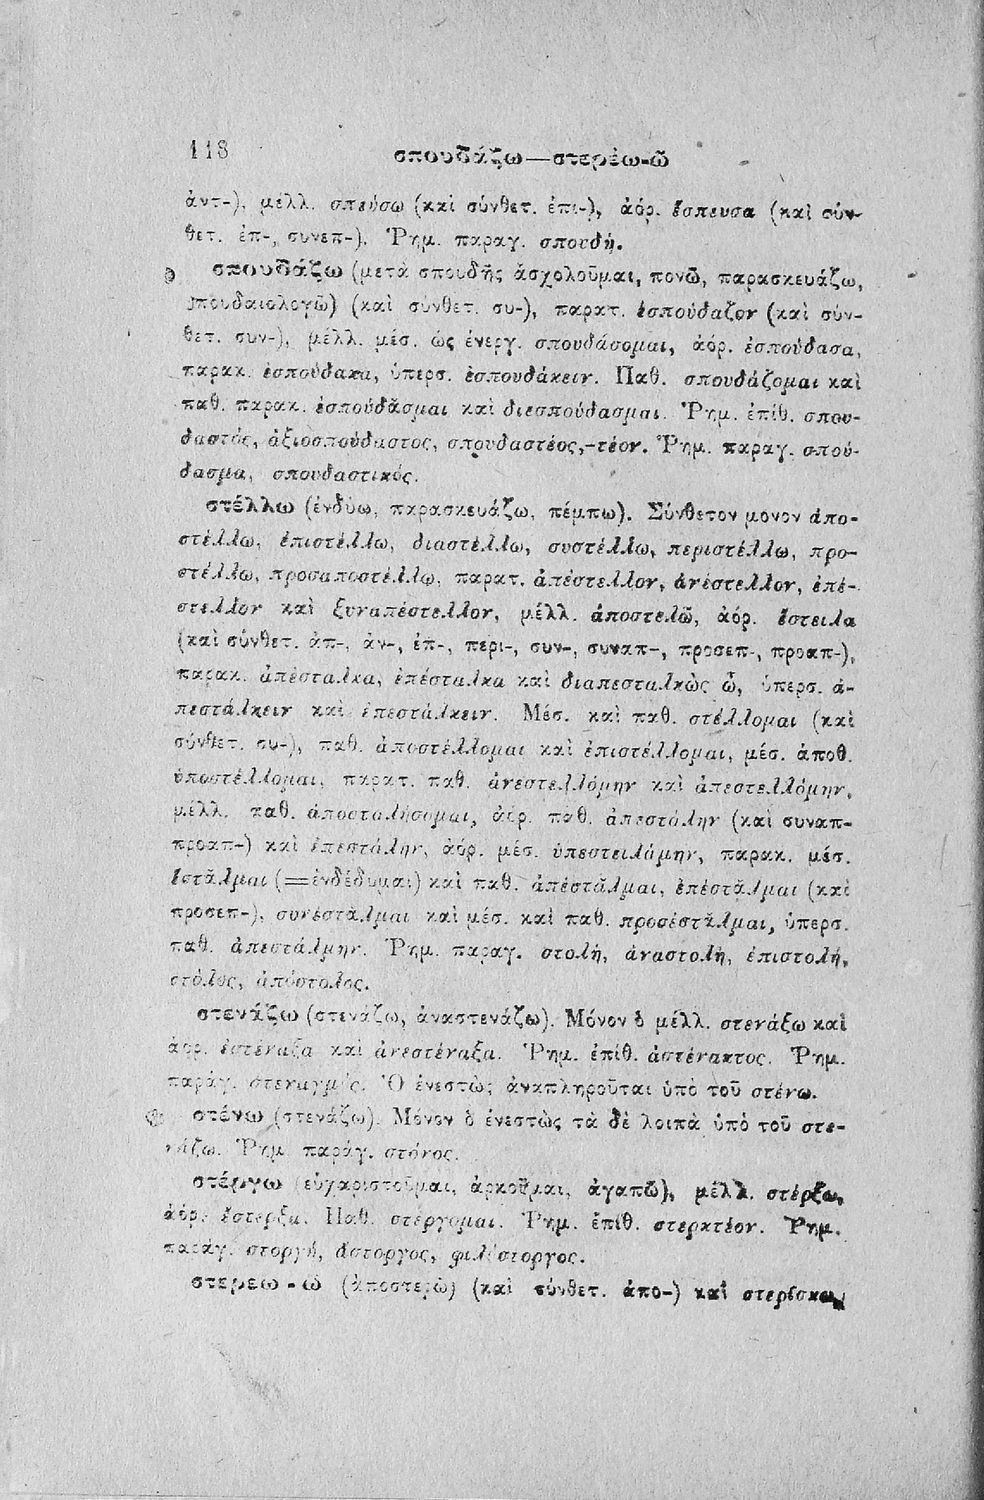 118 σπουδάζω—στερέω-ῶ
ἀντ-), μέλλ. σπεύσω (καὶ σύνθετ. ἐπι-), ἀόρ. ἔσπευσα (καὶ σύν-
θετ. ἐπ-, συνεπ-). Ῥημ. παραγ. σπουδή.
σπουδάζω (μετὰ σπουδῆς ἀσχολοῦμαι, πονῶ, παρασκευάζω,
σπουδαιολογῶ) (καὶ σύνθετ. συ-), παρατ. ἐσπούδαζον (καὶ σύν-
θετ. συν-), μέλλ. μέσ. ὡς ἐνεργ. σπουδάσομαι, ἀόρ. ἐσπούδασα,
παρακ. ἐσπούδακα, ὑπερσ. ἐσπουδάκειν. Παθ. σπουδάζομαι καὶ
παθ. παρακ. ἐσπούδᾰσμαι καὶ διεσπούδασμαι. Ῥημ. ἐπίθ. σπου-
δαστός, ἀξιοσπούδαστος, σπουδαστέος,-τέον. Ῥημ. παραγ. σπού-
δασμα, σπουδαστικός.
στέλλω (ἐνδύω, παρασκευάζω, πέμπω). Σύνθετον μονον ἀπο-
στέλλω, ἐπιστέλλω, διαστέλλω, συστέλλω, περιστέλλω, προ-
στέλλω, προσαποστέλλω, παρατ. ἀπέστελλον, ἀνέστελλον, ἐπέ-
στελλον καὶ ξυναπέστελλον, μέλλ. ἀποστελῶ, ἀόρ. ἔστειλα
(καὶ σύνθετ. ἀπ-, ἀν-, ἐπ-, περι-, συν-, συναπ-, προσεπ-, προαπ-),
παρακ. ἀπέσταλκα, ἐπέσταλκα καὶ διαπεσταλκὼς ὦ, ὑπερσ. ἀ-
πεστάλκειν καὶ ἐπεστάλκειν. Μέσ. καὶ παθ. στέλλομαι (καὶ
σύνθετ. συ-), παθ. ἀποστέλλομαι καὶ ἐπιστέλλομαι, μέσ. ἀποθ.
ὑποστέλλομαι, παρατ. παθ. ἀνεστελλόμην καὶ ἀπεστελλόμην,
μέλλ. παθ. ἀποσταλήσομαι, ἀόρ. παθ. ἀπεστάλην (καὶ συναπ-
προαπ-) καὶ ἐπεστάλην, ἀόρ. μέσ. ὑπεστειλάμην, παρακ. μέσ.
ἔστᾰλμαι (=ἐνδέδυμαι) καὶ παθ. ἀπέστᾰλμαι, ἐπέστᾰλμαι (καὶ
προσεπ-), συνέστᾰλμαι καὶ μέσ. καὶ παθ. προσέστᾰλμαι, ὑπερσ.
παθ. ἀπεστάλμην. Ῥημ. παραγ. στολή, ἀναστολή, ἐπιστολή,
στόλος, ἀπόστολος.
στενάζω (στενάζω, ἀναστενάζω). Μόνον ὁ μέλλ. στενάξω καὶ
ἀόρ. ἐστέναξα καὶ ἀνεστέναξα. Ῥημ. ἐπίθ. ἀστένακτος. Ῥημ.
παράγ. στεναγμός. Ὁ ἐνεστὼς ἀναπληροῦται ὑπὸ τοῦ στένω.
στένω (στενάζω). Μόνον ὁ ἐνεστὼς τὰ δὲ λοιπὰ ὑπὸ τοῦ στε-
νάζω. Ῥημ. παράγ. στόνος.
στέργω (εὐχαριστοῦμαι, ἀρκοῦμαι, ἀγαπῶ), μέλλ. στέρξω,
ἀόρ. ἔστερξα. Παθ. στέργομαι. Ῥημ. ἐπίθ. στερκτέον. Ῥημ.
παράγ. στοργή, ἄστοργος, φιλόστοργος.
στερέω-ῶ (ἀποστερῶ) (καὶ σύνθετ. ἀπο-) καὶ στερίσκω,